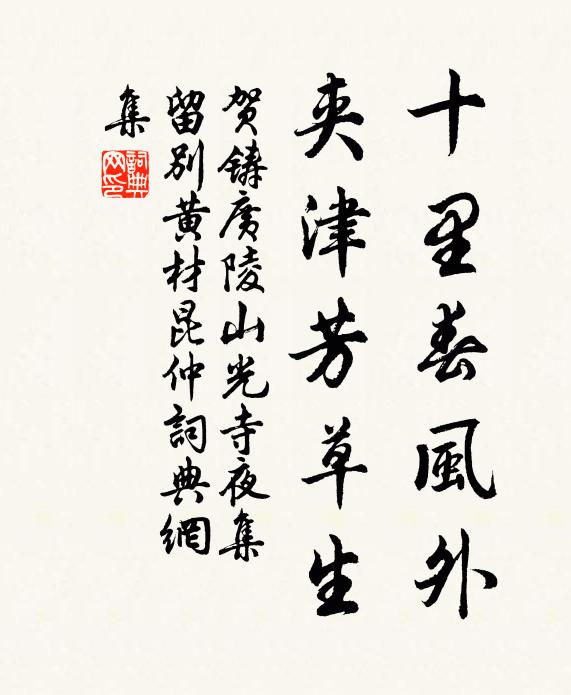 十里春風外
夾津芳草生
賀鑄廣陵山光寺夜集
留別黄材昆仲詞典網
集
詞典
网印